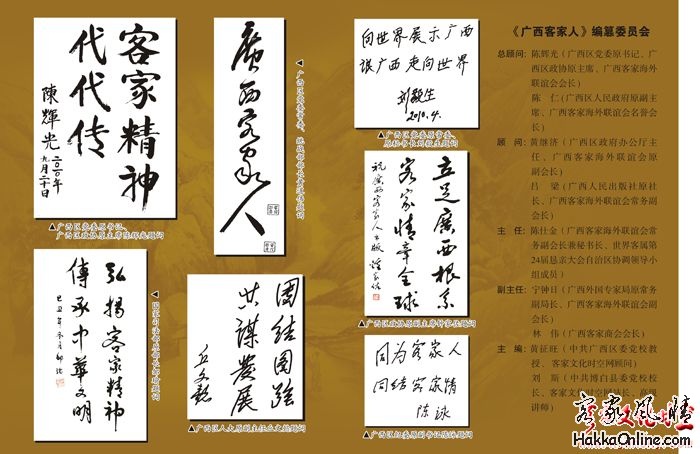 客家精神
代代传
陳輝光
二〇一〇年
九月二十日
▲广西区党委原书记、
广西区政协原主席陈辉光题词
廣西客家人
向世界展示广西
让广西走向世界
2010.4.
▲广西区党委原常委、
立足廣西根系
客家情牵全球
▲广西区政协原副主席钟家佐题词
弘揚客家精神
傳承中華文明
团结图强
共謀發展
丘文懿
▲广西区人大原副主任丘文懿题词
因为客家人
团结客家情
陈泳
《广西客家人》编纂委员会
总顾问:陈辉光(广西区党委原书记、广
西区政协原主席、广西客家海外
联谊会会长)
陈 仁(广西区人民政府原副主
席、广西客家海外联谊会名誉会
长)
顾 问:黄继济(广西区政府办公厅主
任、广西客家海外联谊会原
副会长)
吕 梁(广西人民出版社原社
长、广西客家海外联谊会常务副
会长)
主 任:陈仕金(广西客家海外联谊会常
务副会长兼秘书长、世界客属第
24届恳亲大会自治区协调领导小
组成员)
副主任:宁钟日(广西外国专家局原常务
副局长、广西客家海外联谊会副
会长)
林 伟(广西客家商会会长)
主 编:黄征旺(中共广西区委党校教
授、客家文化时空网顾问)
刘 斯(中共博白县委党校校
长、客家文化时空网站长、高级
讲师)
客家风情
HakkaOnline.com